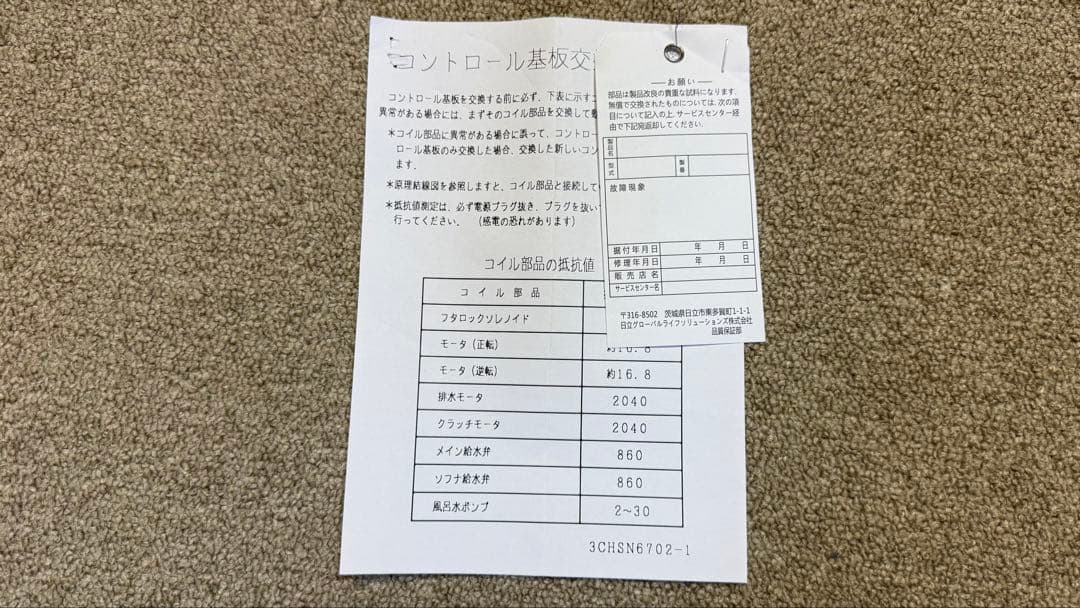 コントロール基板交
コントロール基板を交換する前に必ず、下表に示すコ
異常がある場合には、まずそのコイル部品を交換して
＊コイル部品に異常がある場合に誤って、コントロー
ロール基板のみ交換した場合、交換した新しいコン
ます。
＊原理結線図を参照しますと、コイル部品と接続して
＊抵抗値測定は、必ず電源プラグ抜き、プラグを抜い
行ってください。 （感電の恐れがあります）
コイル部品の抵抗値
コイル部品
フタロックソレノイド
モータ（正転） 約16.8
モータ（逆転） 約16.8
排水モータ 2040
クラッチモータ 2040
メイン給水弁 860
ソフナ給水弁 860
風呂水ポンプ 2〜30
3CHSN6702-1
――お願い――
部品は製品改良の貴重な試料になります。
無償で交換されたものについては、次の項
目について記入の上、サービスセンター経
由で下記宛返却してください。
製品名
型式 製番
故障現象
据付年月日 年 月 日
修理年月日 年 月 日
販売店名
サービスセンター名
〒316-8502 茨城県日立市東多賀町1-1-1
日立グローバルライフソリューションズ株式会社
品質保証部